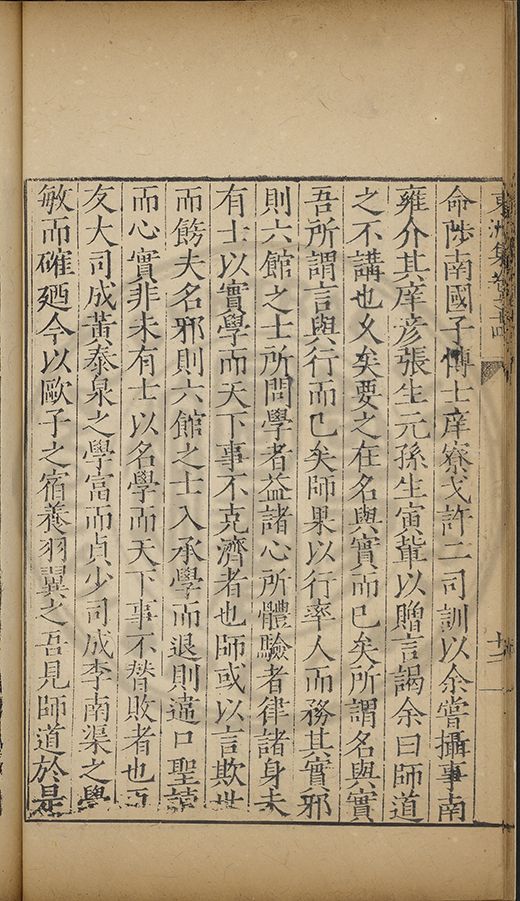 東洲集卷之十四
十二
命陟南國子博士庠寮戈許二司訓以余嘗攝事南
雍介其庠彦張生元孫生寅軰以贈言謁余曰師道
之不講也乆矣要之在名與實而已矣所謂名與實
吾所謂言與行而已矣師果以行率人而務其實邪
則六館之士所問學者益諸心所體驗者律諸身未
有士以實學而天下事不克濟者也師或以言欺世
而餙夫名邪則六館之士入承學而退則違口聖謨
而心實非未有士以名學而天下事不朁敗者也吾
友大司成黄泰泉之學富而貞少司成李南渠之學
敏而確廼今以歐子之宿養羽翼之吾見師道於是